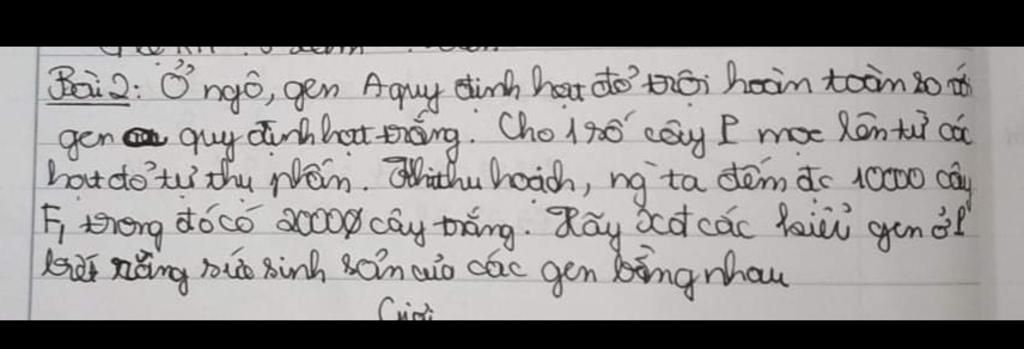 Bài 2: Ở ngô, gen A quy định hạt đỏ trội hoàn toàn so với
gen a quy định hạt trắng. Cho 1 số cây P mọc lên từ các
hạt đỏ tự thụ phấn. Khi thu hoạch, ng ta đếm đc 10000 cây
F1 trong đó có 2000 cây trắng. Hãy xđ các kiểu gen ở P
biết rằng sức sinh sản của các gen bằng nhau